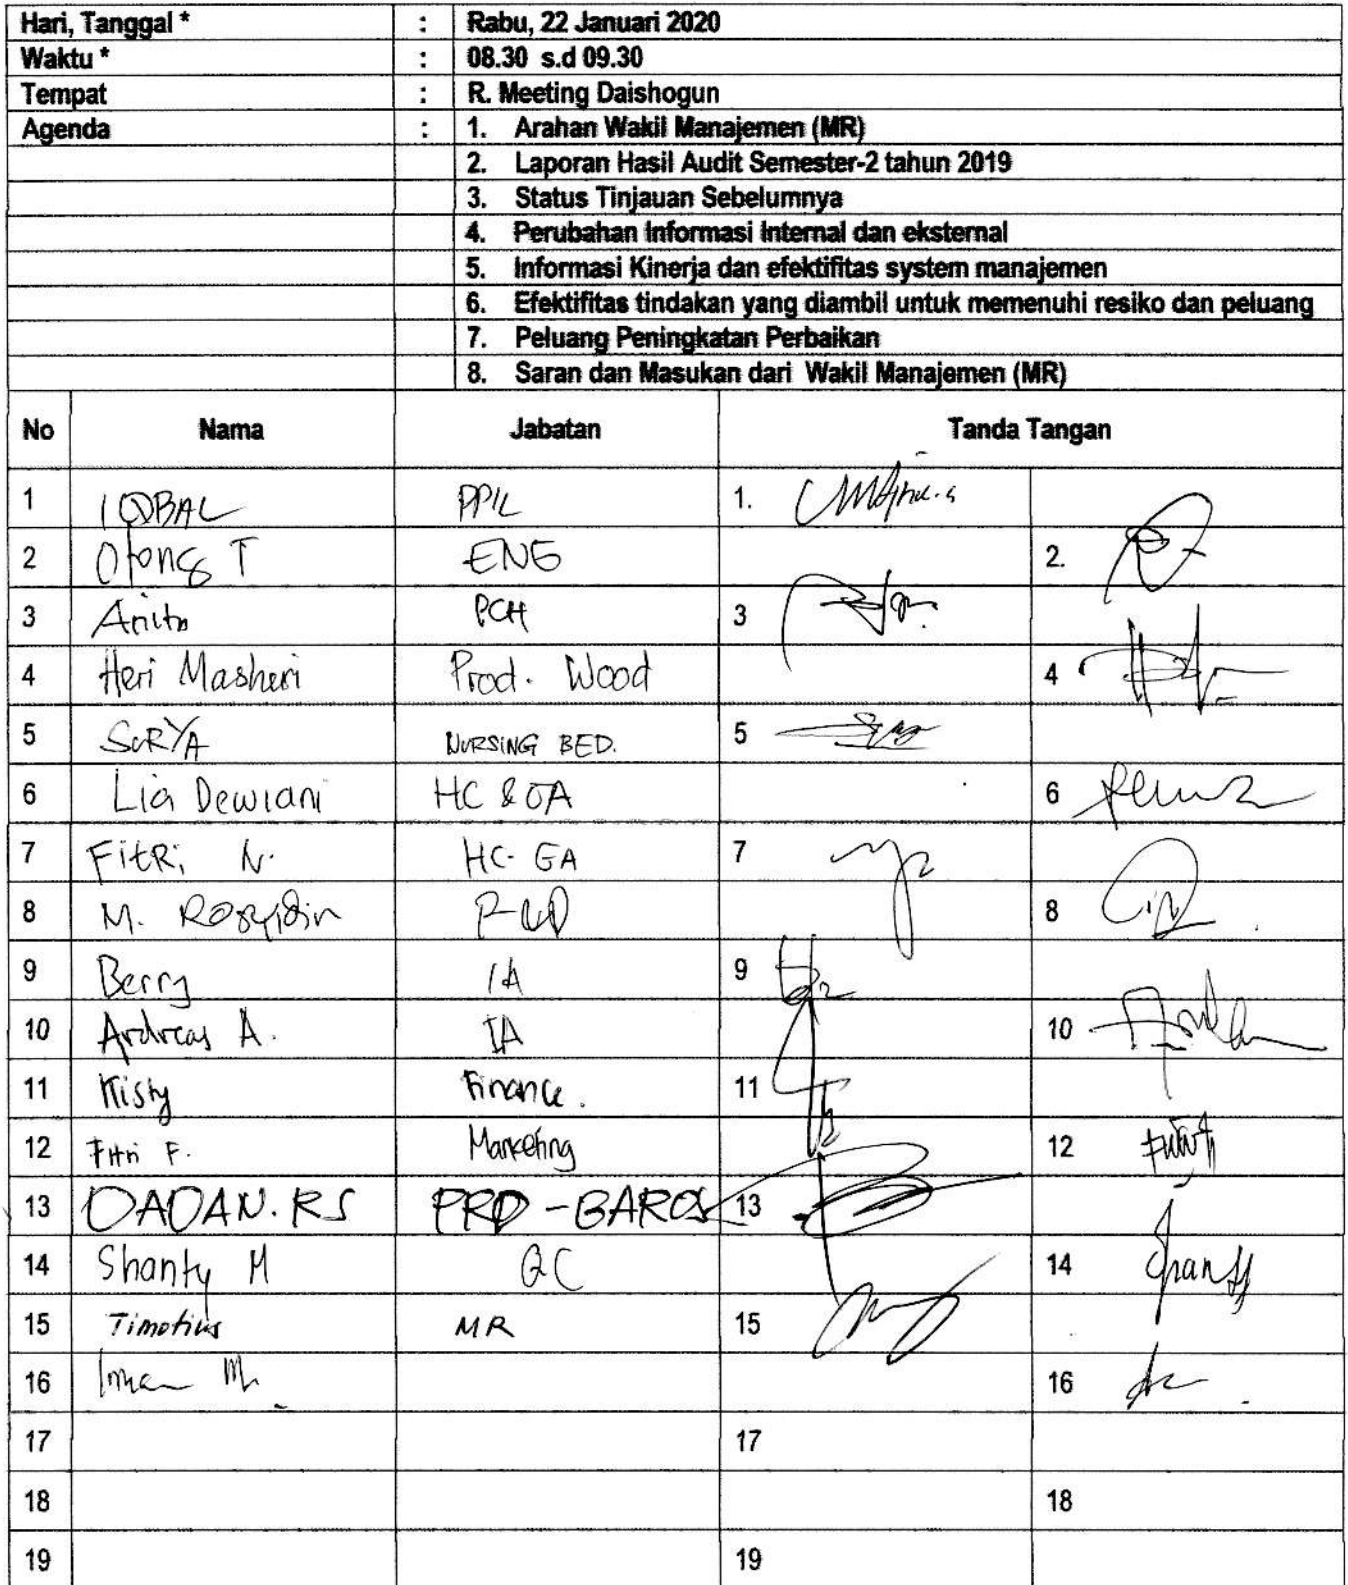 Hari, Tanggal * : Rabu, 22 Januari 2020
Waktu * : 08.30 s.d 09.30
Tempat : R. Meeting Daishogun
Agenda : 1. Arahan Wakil Manajemen (MR)
2. Laporan Hasil Audit Semester-2 tahun 2019
3. Status Tinjauan Sebelumnya
4. Perubahan Informasi Internal dan eksternal
5. Informasi Kinerja dan efektifitas system manajemen
6. Efektifitas tindakan yang diambil untuk memenuhi resiko dan peluang
7. Peluang Peningkatan Perbaikan
8. Saran dan Masukan dari Wakil Manajemen (MR)
No Nama Jabatan Tanda Tangan
1 IQBAL 1.
2 T ENG 2.
3 Anita PCH 3
4 Heri Masheri Prod. Wood 4
5 SURYA NURSING BED. 5
6 Lia Dewiani HC & GA 6
7 FitRi N. HC. GA 7
8 M. Rosyidin 8
9 Berry IA 9
10 Andreas A. IA 10
11 Kisty Finance. 11
12 Fitri F. Marketing 12
13 DADAN.RS PRD-BAROS 13
14 Shanty M QC 14 Shanty
15 Timotius MR 15
16 Iman M. 16
17 17
18 18
19 19